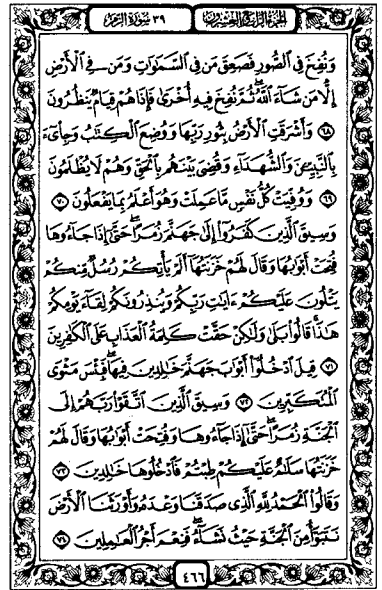 الجزء الرابع والعشرون
٣٩ سورة الزمر
وَنُفِخَ فِي الصُّورِ فَصَعِقَ مَن فِي السَّمَوَاتِ وَمَن فِي الْأَرْضِ
إِلَّا مَن شَاءَ اللَّهُ ثُمَّ نُفِخَ فِيهِ أُخْرَى فَإِذَا هُمْ قِيَامٌ يَنظُرُونَ
٦٨ وَأَشْرَقَتِ الْأَرْضُ بِنُورِ رَبِّهَا وَوُضِعَ الْكِتَبُ وَجِايءَ
بِالنَّبِيِّينَ وَالشُّهَدَاءِ وَقُضِيَ بَيْنَهُم بِالْحَقِّ وَهُمْ لَا يُظْلَمُونَ
٦٩ وَوُفِّيَتْ كُلُّ نَفْسٍ مَّا عَمِلَتْ وَهُوَ أَعْلَمُ بِمَا يَفْعَلُونَ ٧٠
وَسِيقَ الَّذِينَ كَفَرُوا إِلَى جَهَنَّمَ زُمَرًا حَتَّى إِذَا جَاءُوهَا
فُتِحَتْ أَبْوَابُهَا وَقَالَ لَهُمْ خَزَنَتُهَا أَلَمْ يَأْتِكُمْ رُسُلٌ مِّنكُمْ
يَتْلُونَ عَلَيْكُمْ ءَايَاتِ رَبِّكُمْ وَيُنذِرُونَكُمْ لِقَاءَ يَوْمِكُمْ
هَذَا قَالُوا بَلَى وَلَكِنْ حَقَّتْ كَلِمَةُ الْعَذَابِ عَلَى الْكَفِرِينَ
٧١ قِيلَ ادْخُلُوا أَبْوَابَ جَهَنَّمَ خَالِدِينَ فِيهَا فَبِئْسَ مَثْوَى
الْمُتَكَبِّرِينَ ٧٢ وَسِيقَ الَّذِينَ اتَّقَوْا رَبَّهُمْ إِلَى
الْجَنَّةِ زُمَرًا حَتَّى إِذَا جَاءُوهَا وَفُتِحَتْ أَبْوَابُهَا وَقَالَ لَهُمْ
خَزَنَتُهَا سَلَامٌ عَلَيْكُمْ طِبْتُمْ فَادْخُلُوهَا خَالِدِينَ ٧٣
وَقَالُوا الْحَمْدُ لِلَّهِ الَّذِي صَدَقَنَا وَعْدَهُ وَأَوْرَثَنَا الْأَرْضَ
نَتَبَوَّأُ مِنَ الْجَنَّةِ حَيْثُ نَشَاءُ فَنِعْمَ أَجْرُ الْعَامِلِينَ ٧٤
٤٦٦